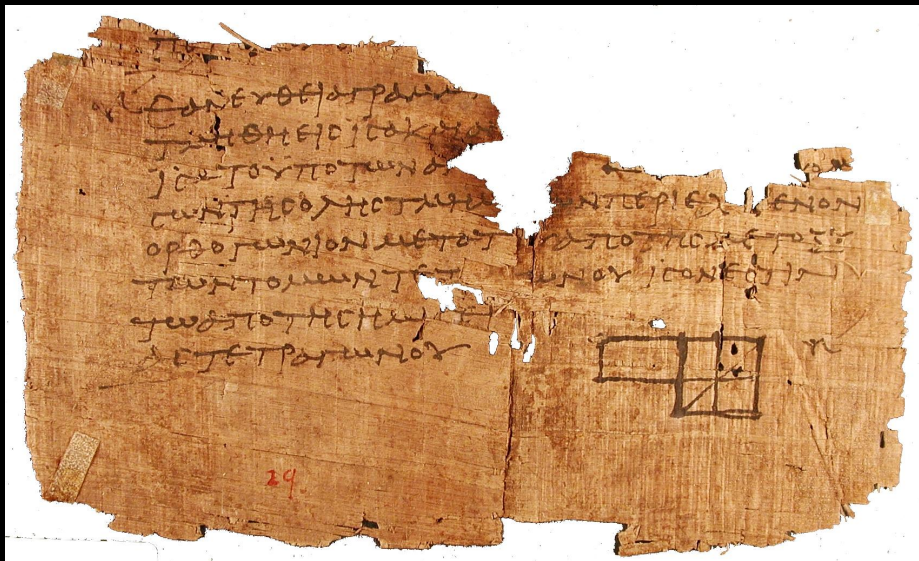 ΕΑΝΕΥΘΕΙΑΓΡΑΜ
ΤΜΗΘΗΕΙΣΙΣΑΚ
ΙΣΑΤΟΥΠΟΤΩΝΑ
ΣΩΝΤΗΣΟΛΗΣΤΜΗΜ ΝΠΕΡΙΕΧ ΕΝΟΝ
ΟΡΘΟΓΩΝΙΟΝΜΕΤΑΤ ΥΑΠΟΤΗΣΜΕΤΟΞΥ
ΤΩΝΤΟΜΩΝΤΕΤ ΩΝΟΥΙΣΟΝΕΣΤΙΝ
ΤΩΑΠΟΤΗΣΗΜΙΣΕΙ
ΤΕΤΡΑΓΩΝΟΥ
29.